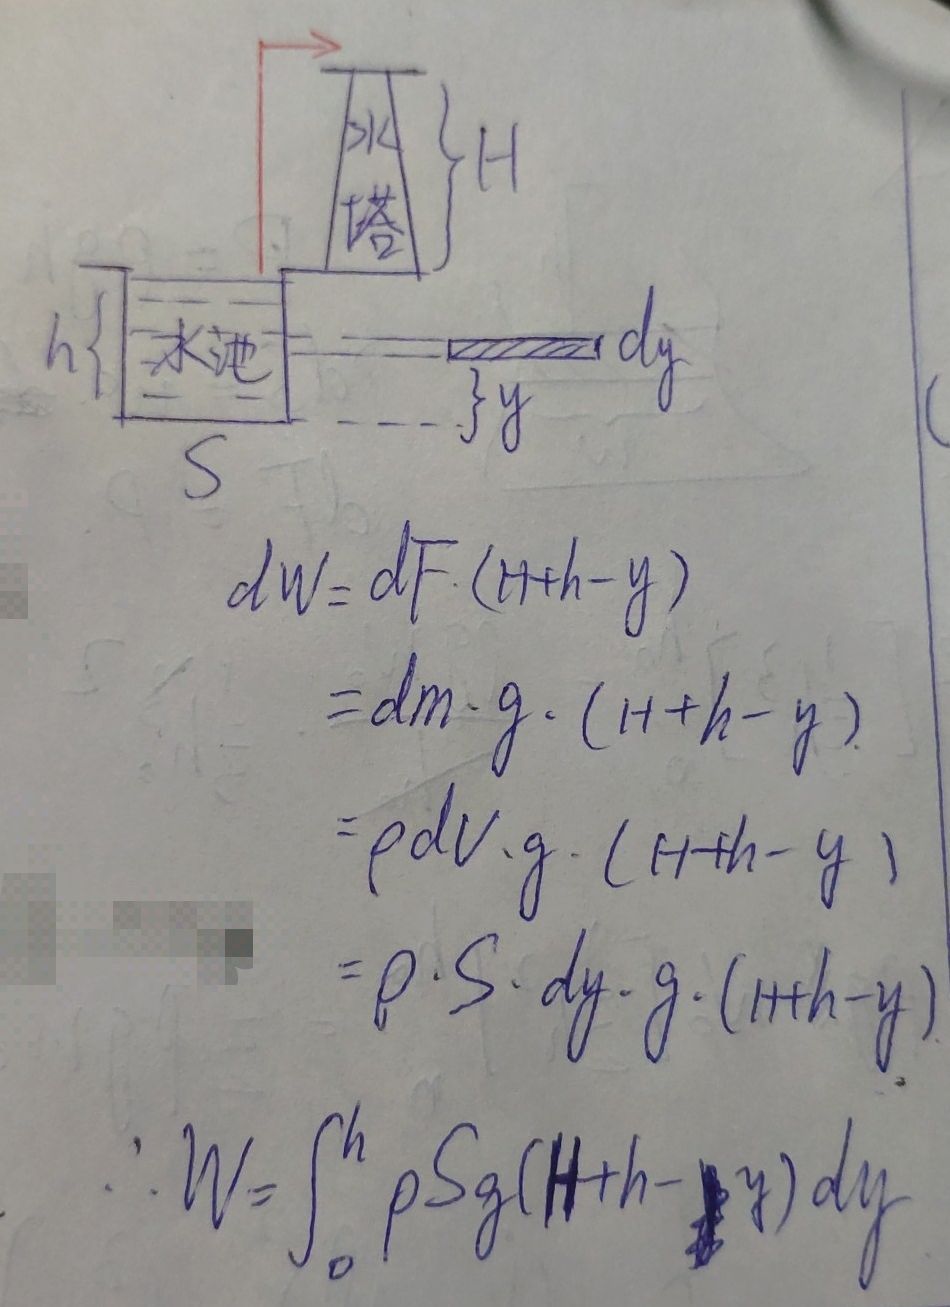 水
塔
H
h
水池
dy
y
S
dW = dF·(H+h-y)
= dm·g·(H+h-y)
= ρdV·g·(H+h-y)
= ρ·S·dy·g·(H+h-y)
∴ W = ∫₀ʰ ρSg(H+h-y)dy